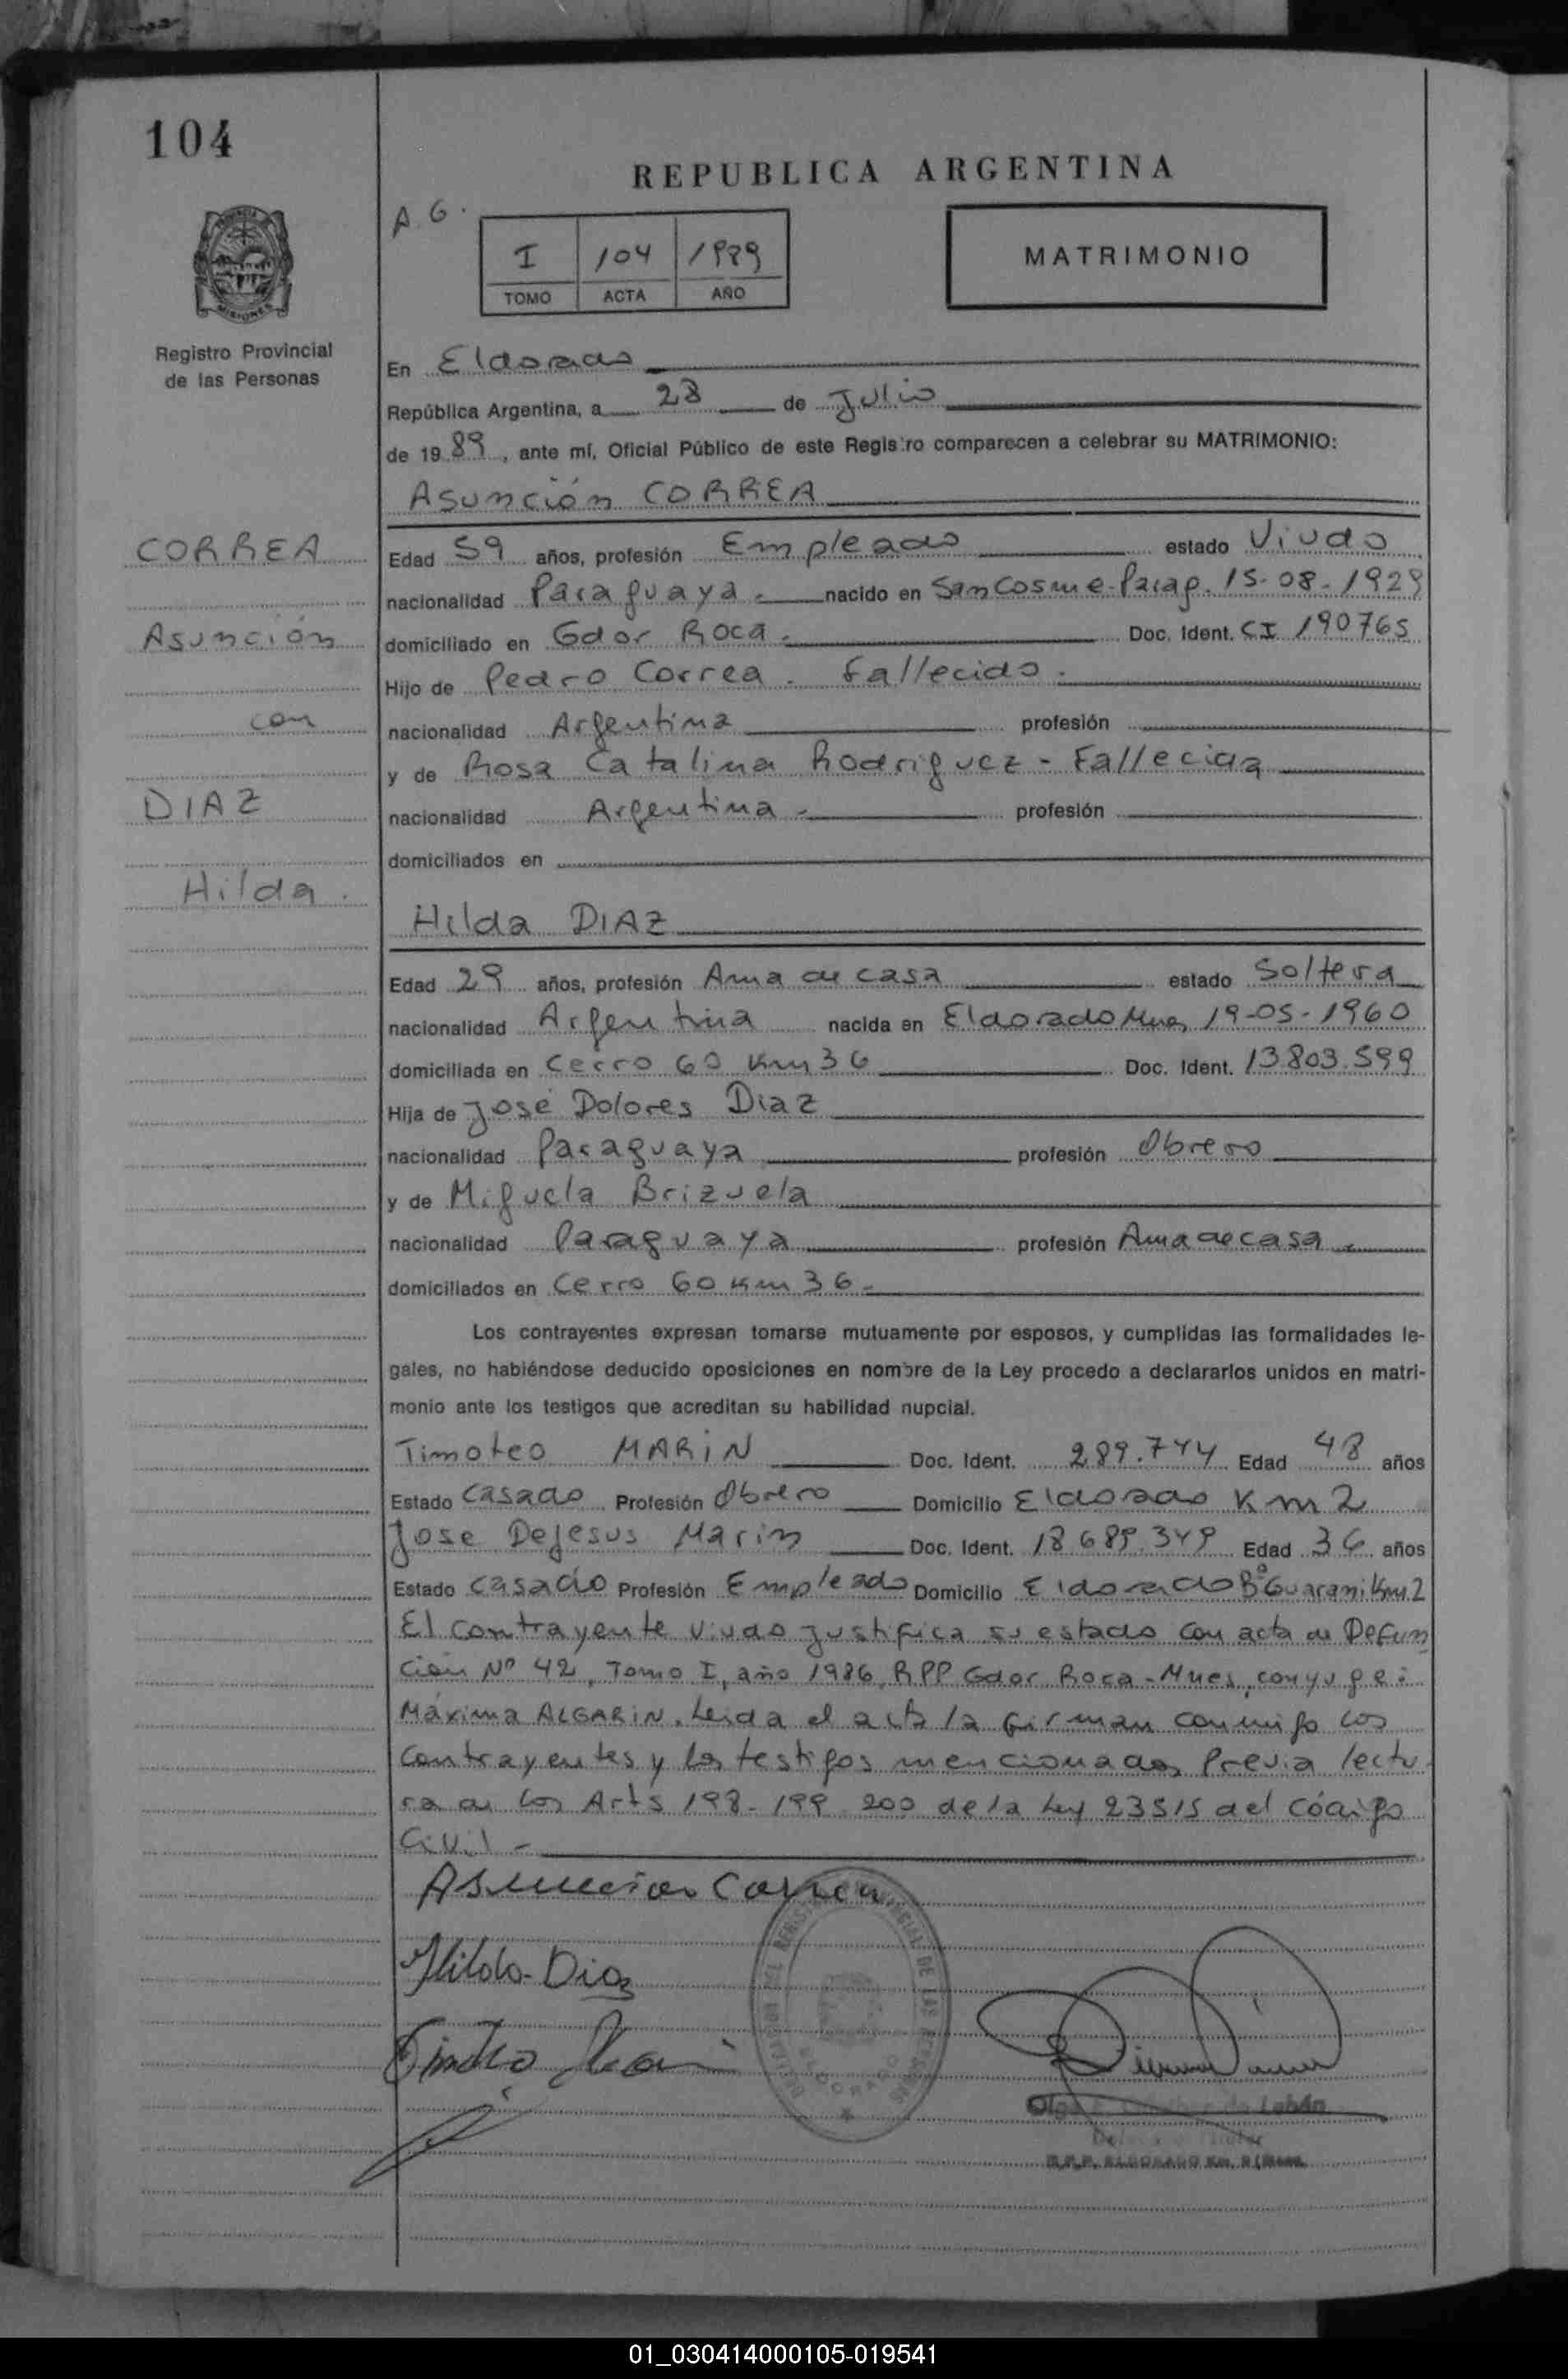 104
REPUBLICA ARGENTINA
A.G.
I 104 1989
TOMO ACTA AÑO
MATRIMONIO
PROVINCIA
MISIONES
Registro Provincial
de las Personas
En Eldorado
República Argentina, a 28 de Julio
de 1989, ante mí, Oficial Público de este Registro comparecen a celebrar su MATRIMONIO:
Asunción CORREA
CORREA
Asunción
con
DIAZ
Hilda.
Edad 59 años, profesión Empleado estado Viudo
nacionalidad Paraguaya.- nacido en San Cosme-Parag. 15-08-1929
domiciliado en Gdor Roca.- Doc. Ident. CI 190765
Hijo de Pedro Correa. Fallecido.
nacionalidad Argentina profesión
y de Rosa Catalina Rodriguez - Fallecida
nacionalidad Argentina.- profesión
domiciliados en
Hilda DIAZ
Edad 29 años, profesión Ama de casa estado Soltera
nacionalidad Argentina nacida en Eldorado Mnes 19-05-1960
domiciliada en Cerro 60 Km 36 Doc. Ident. 13.803.599
Hija de José Dolores Diaz
nacionalidad Paraguaya profesión Obrero
y de Miguela Brizuela
nacionalidad Paraguaya profesión Ama de casa.-
domiciliados en Cerro 60 Km 36.-
Los contrayentes expresan tomarse mutuamente por esposos, y cumplidas las formalidades le-
gales, no habiéndose deducido oposiciones en nombre de la Ley procedo a declararlos unidos en matri-
monio ante los testigos que acreditan su habilidad nupcial.
Timoteo MARIN Doc. Ident. 289.744 Edad 48 años
Estado Casado Profesión Obrero Domicilio Eldorado Km 2
Jose DeJesus Marin Doc. Ident. 18.689.349 Edad 36 años
Estado Casado Profesión Empleado Domicilio Eldorado Bº Guarani Km 2
El contrayente viudo justifica su estado con acta de Defun
ción Nº 42, Tomo I, año 1986, RPP Gdor Roca-Mnes, conyuge:
Máxima ALGARIN. Leida el acta la firman conmigo los
contrayentes y los testigos mencionados Previa lectu
ra de los Arts 198-199 200 de la Ley 23515 del Código
Civil.-
Asuncion Correa
Hilda Diaz
Timoteo Marin
01_030414000105-019541